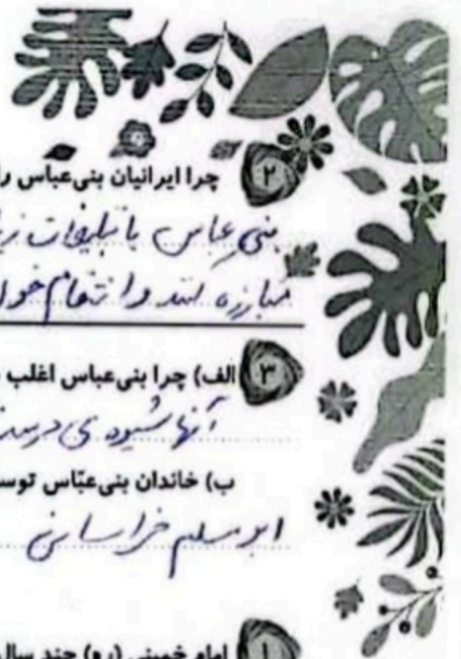 ۲ چرا ایرانیان بنی‌عباس را
بنی عباس با تبلیغات
مبارزه کنند و انتقام
۳ الف) چرا بنی‌عباس اغلب
آنها شیوه ی درست
ب) خاندان بنی‌عبّاس توسط
ابو مسلم خراسانی
۱ امام خمینی (ره) چند سال